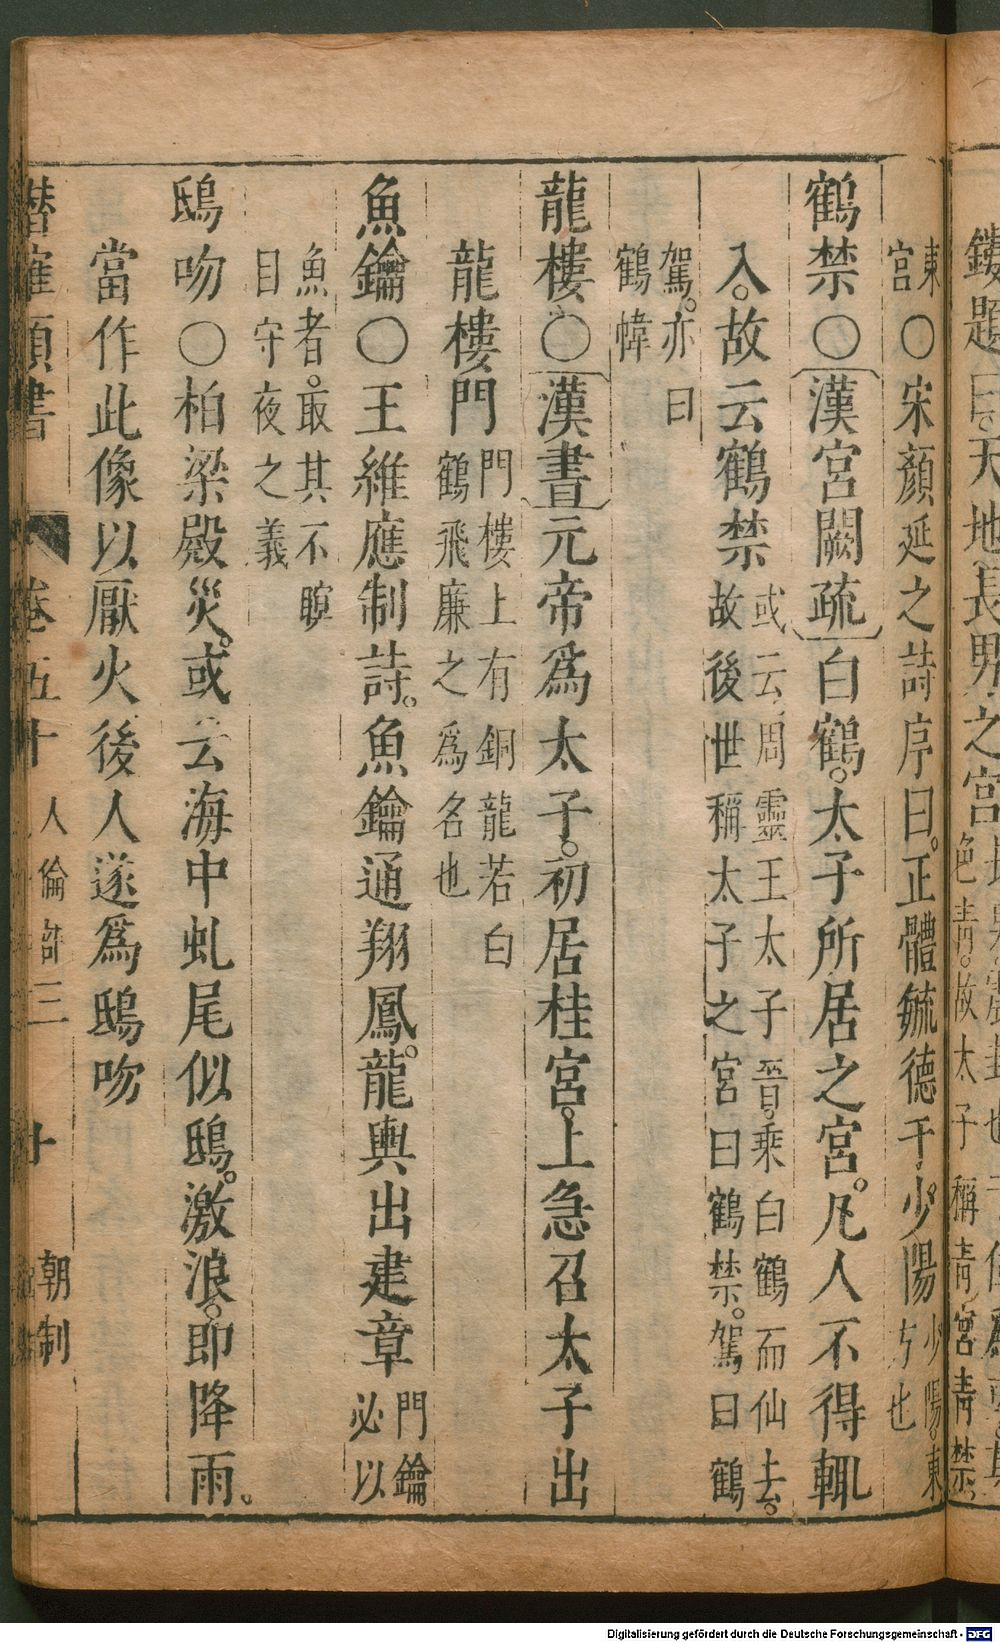 鏤題曰天地長男之宮
色青。故太子稱青宮青禁
東
宮
〇宋顏延之詩序曰。正體毓德于少陽
少陽。東
方也
鶴禁〇漢宮闕疏白鶴。太子所居之宮。凡人不得輒
入。故云鶴禁
或云周靈王太子晉。乘白鶴而仙去。
故後世稱太子之宮曰鶴禁。駕曰鶴
駕。亦曰
鶴幃
龍樓〇漢書元帝爲太子。初居桂宮。上急召太子出
龍樓門
門樓上有銅龍若白
鶴飛廉之爲名也
魚鑰〇王維應制詩。魚鑰通翔鳳。龍輿出建章
門鑰
必以
魚者。取其不瞑
目守夜之義
鴟吻〇柏梁殿災。或云海中虬尾似鴟。激浪。即降雨。
當作此像以厭火後人遂爲鴟吻
潛確類書 卷五十 人倫部三 十 朝制
Digitalisierung gefördert durch die Deutsche Forschungsgemeinschaft - DFG